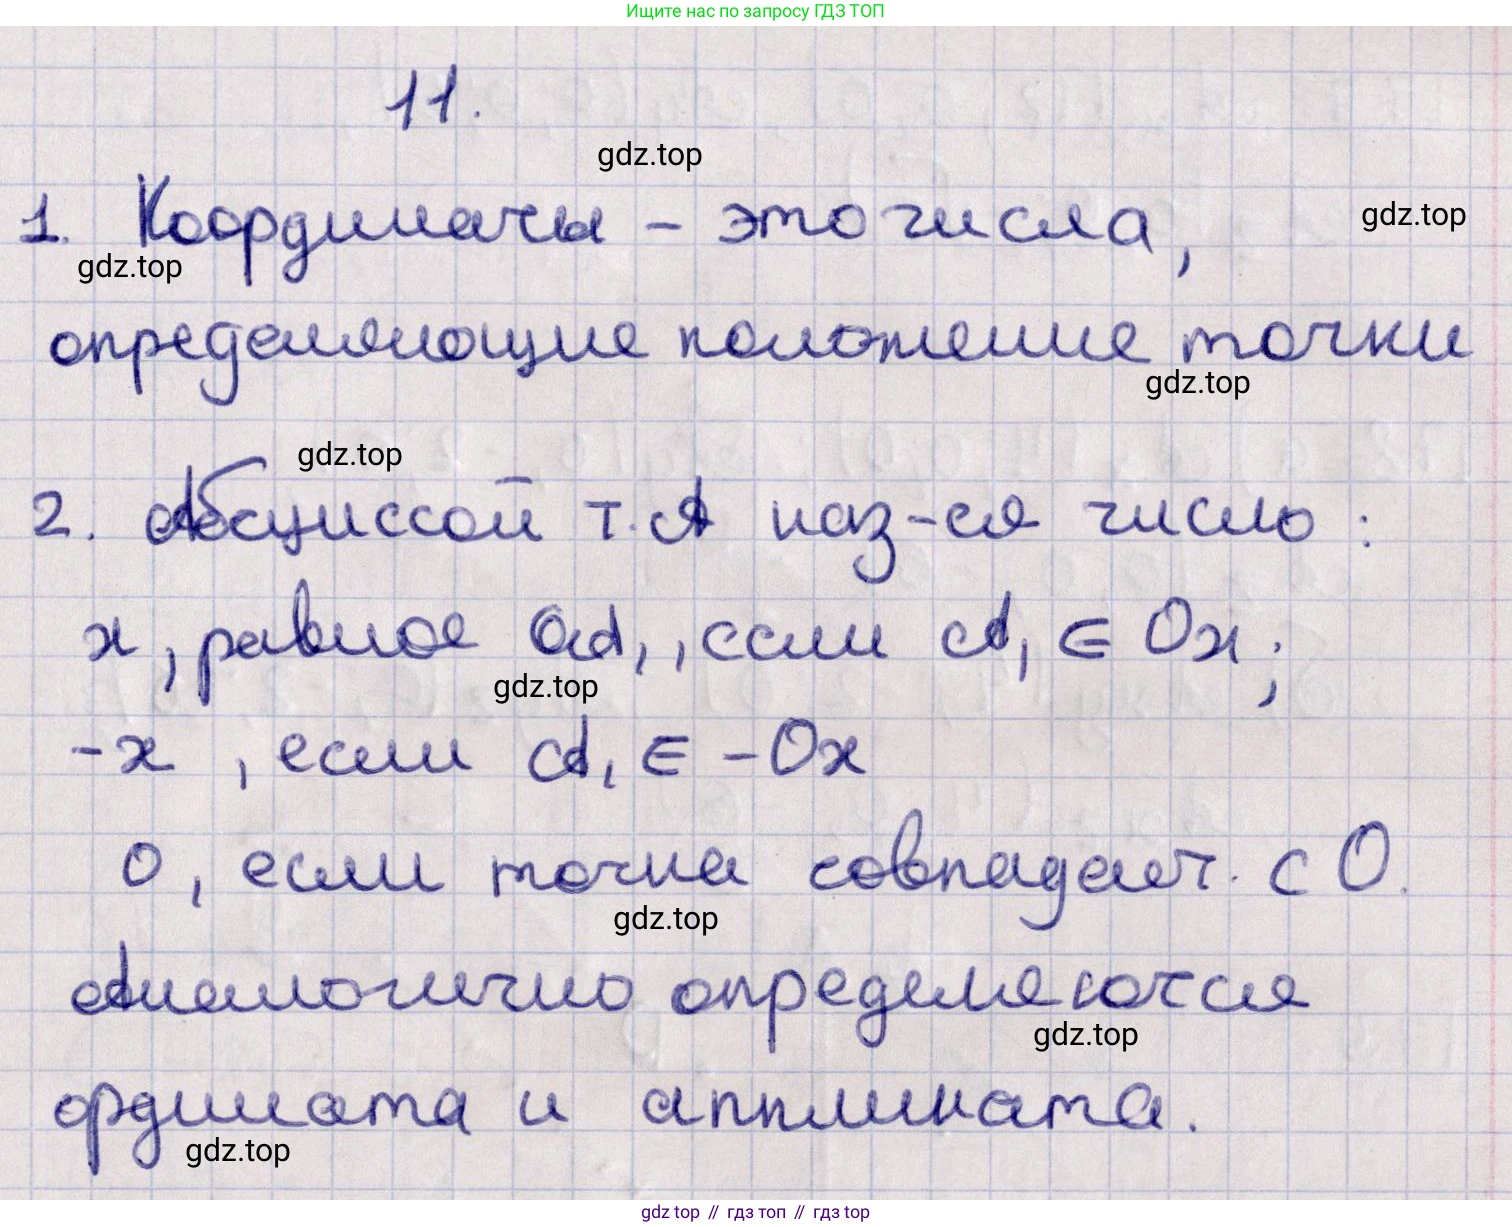 Ищите нас по запросу ГДЗ ТОП
11.
gdz.top
1. Координаты – это числа,
gdz.top
gdz.top
определяющие положение точки
gdz.top
gdz.top
2. Абсциссой т. А наз-ся число :
x, равное OA₁, если A₁ ∈ Ox;
gdz.top
-x , если A₁ ∈ -Ox
0, если точка совпадает. с O.
gdz.top
Аналогично определяются
gdz.top
ордината и аппликата.
gdz.top
gdz top // гдз топ // гдз top